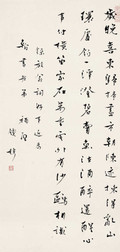 歲晚喜東歸掃盡市朝陳迹揀得亂
山環處釣一潭澄碧賣魚沽酒醉還醒心
事付橫笛家在萬重雲外有沙鷗相識
陸放翁詞好事近